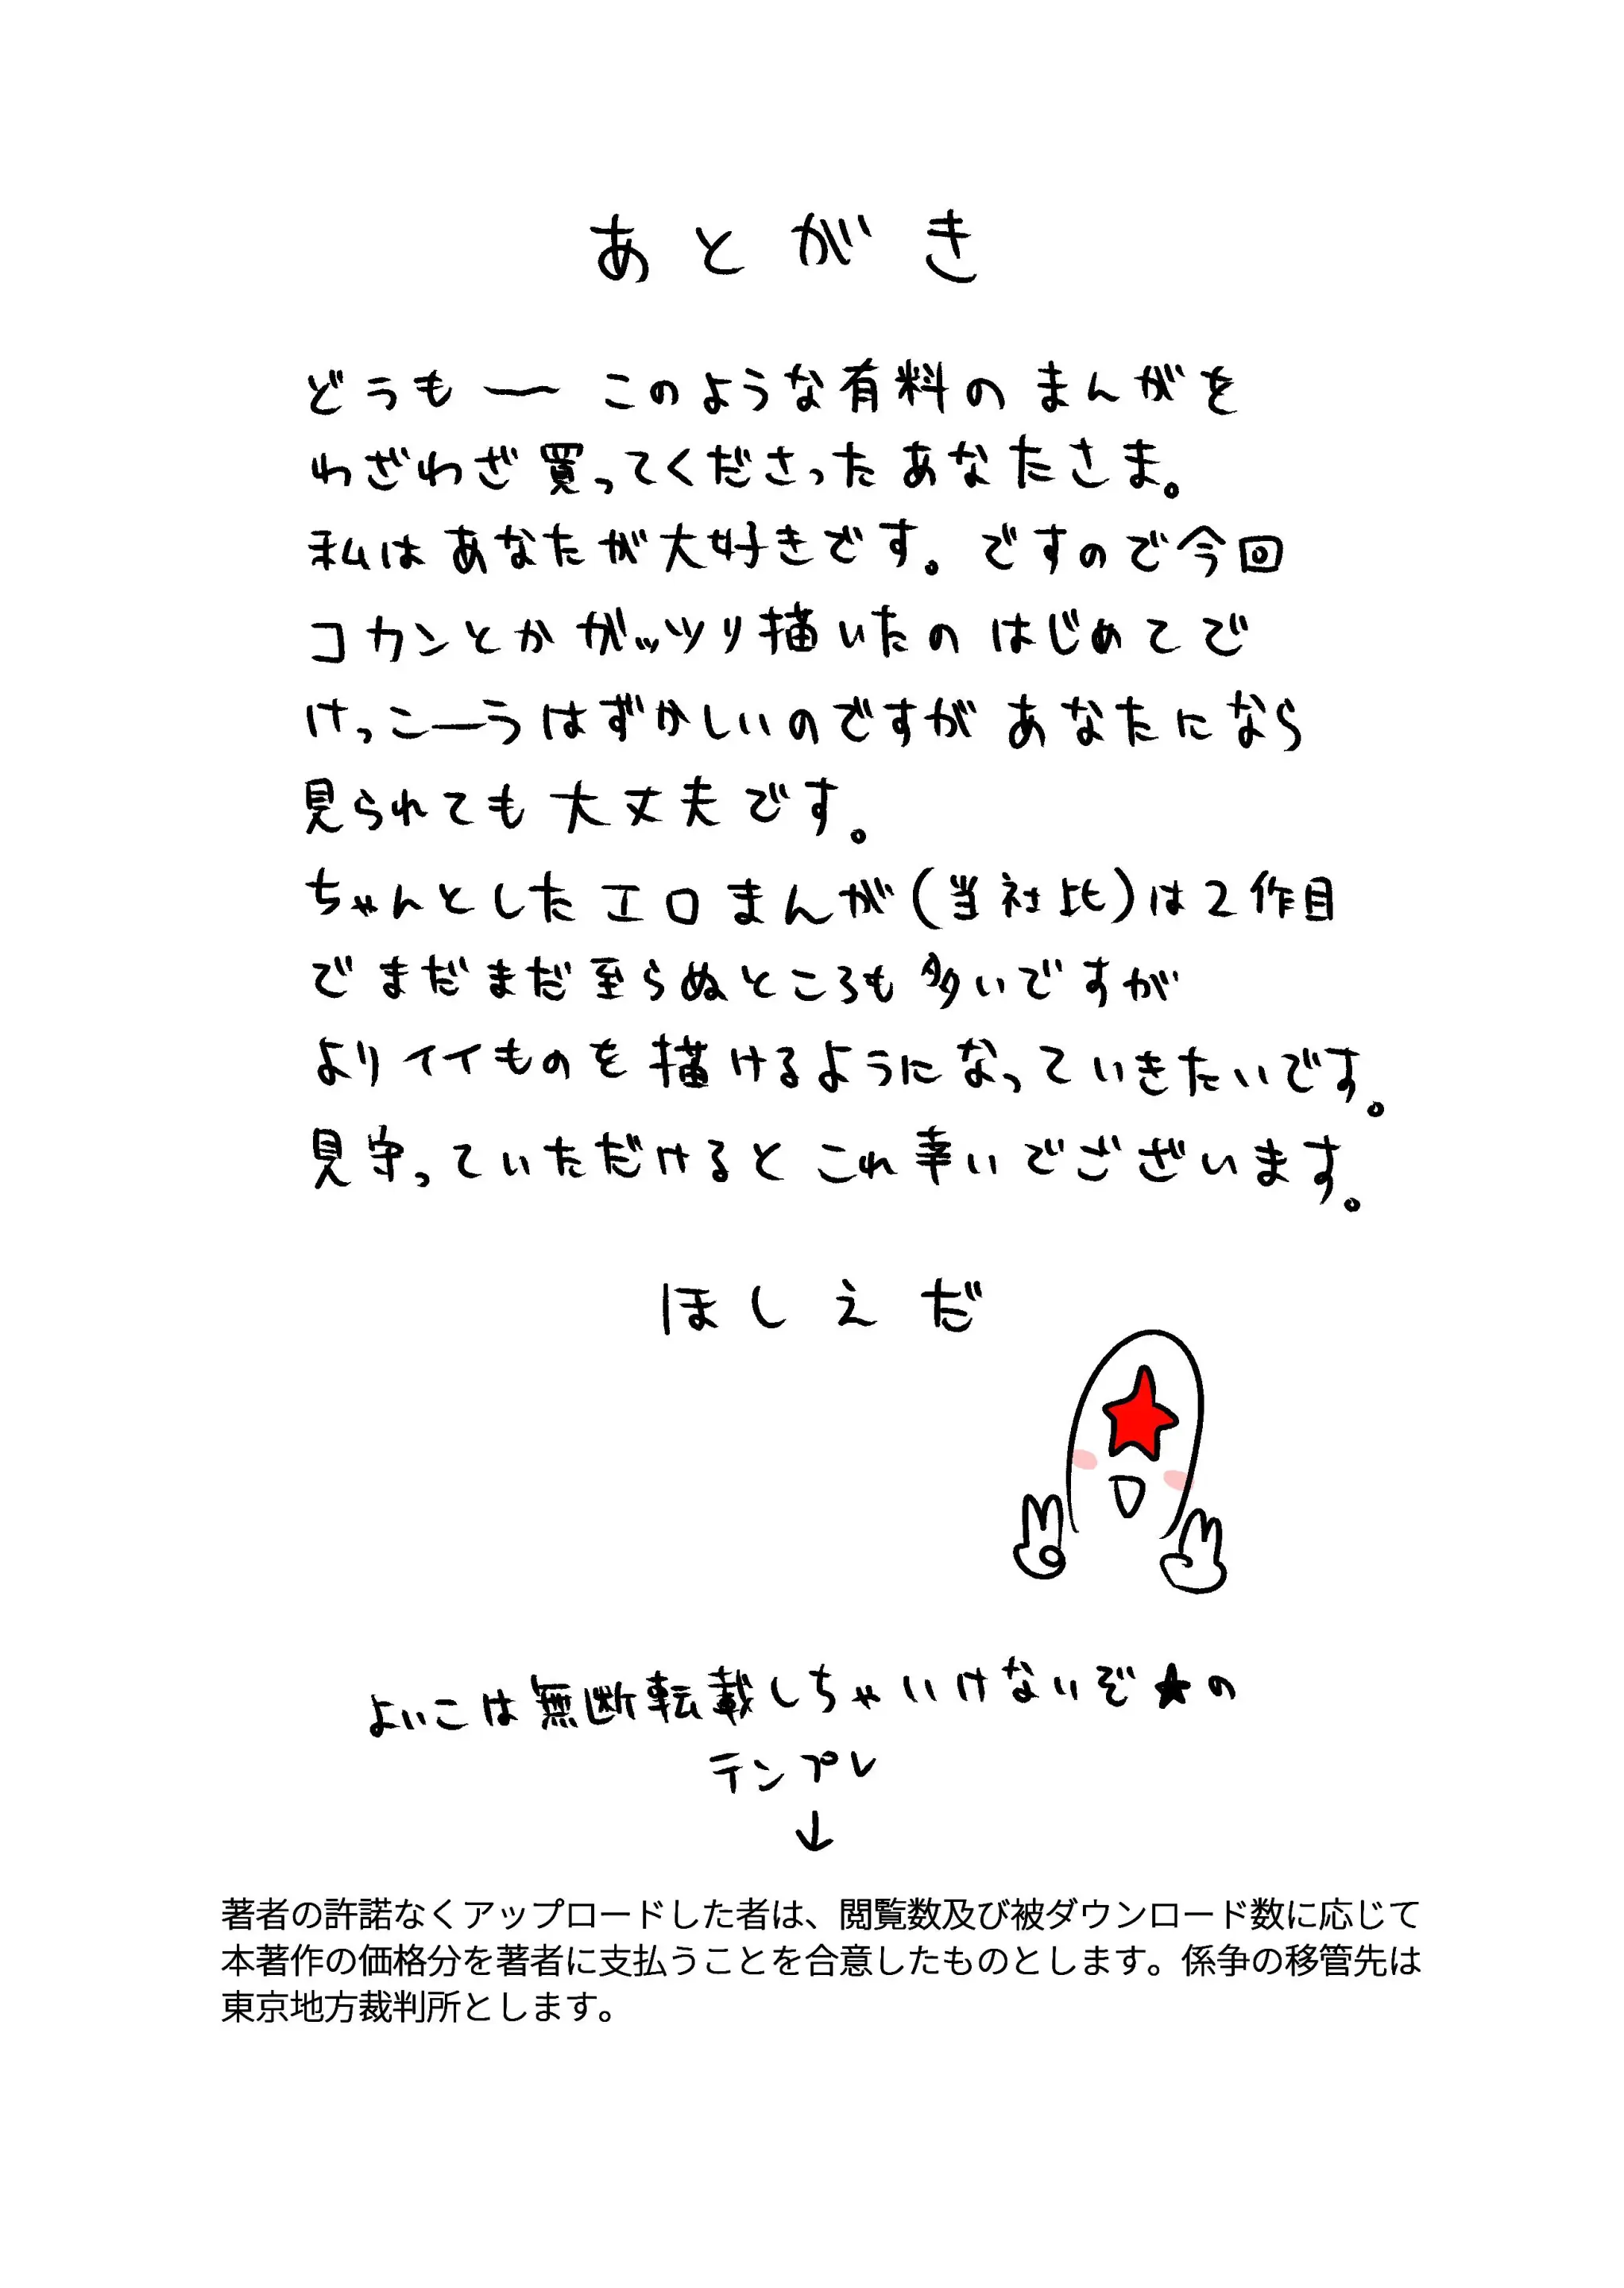 あとがき
どうもー このような有料のまんがを
わざわざ買ってくださったあなたさま。
私はあなたが大好きです。ですので今回
コカンとかガッツリ描いたのはじめてで
けっこーうはずかしいのですがあなたになら
見られても大丈夫です。
ちゃんとしたエロまんが(当社比)は2作目
でまだまだ至らぬところも多いですが
よりイイものを描けるようになっていきたいです。
見守っていただけるとこれ幸いでございます。
ほしえだ
よいこは無断転載しちゃいけないぞ★の
テンプレ
↓
著者の許諾なくアップロードした者は、閲覧数及び被ダウンロード数に応じて
本著作の価格分を著者に支払うことを合意したものとします。係争の移管先は
東京地方裁判所とします。